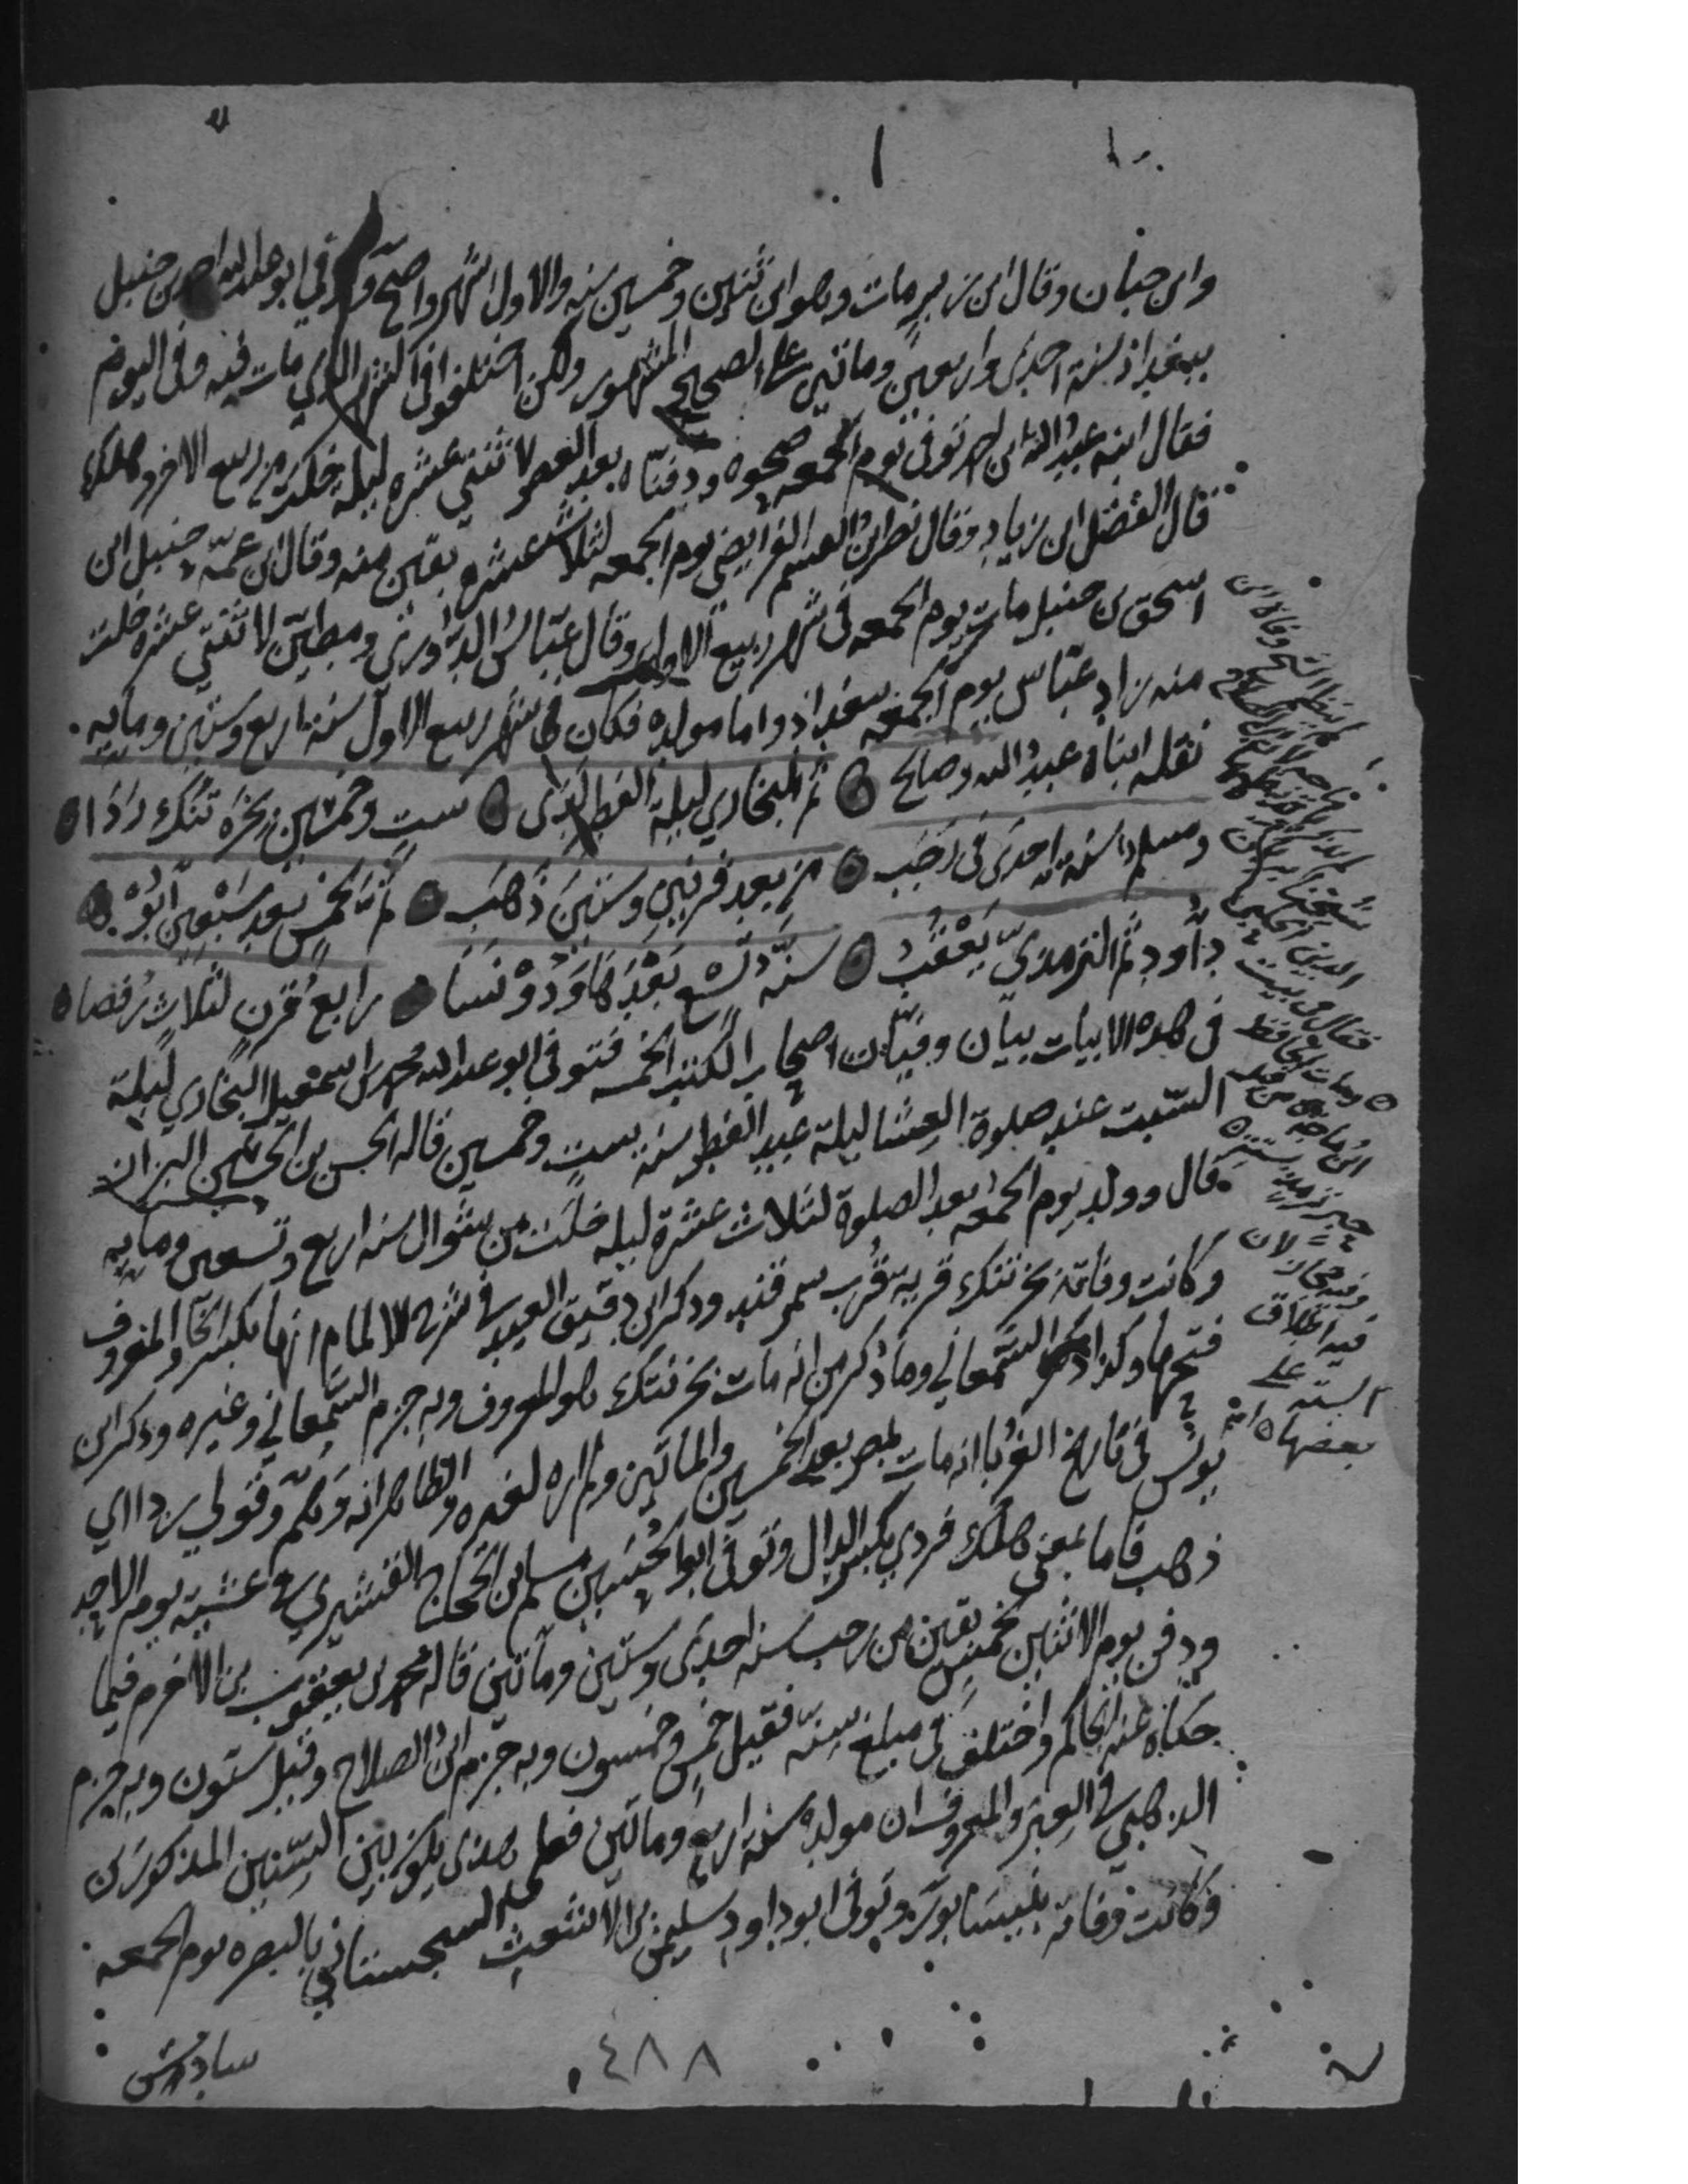 وابن حبان وقال ابن زبر مات وهو ابن ثنتين وخمسين سنه والاول اشهر واصح وتوفي ابو عبد الله احمد بن حنبل
ببغداذ سنة احدى واربعين ومائتين على الصحيح المشهور ولكن اختلفوا في الشهر الذي مات فيه وفي اليوم
فقال ابنه عبد الله ابن احمد توفي يوم الجمعه ضحوه ودفناه بعد العصر لاثنتي عشره ليله خلت من ربيع الاخر وهكذا
قال الفضل ابن زياد وقال نصر بن القسم الفرايضي يوم الجمعه لثلاث عشره بقين منه وقال ابن عمه حنبل ابن
اسحق بن حنبل مات يوم الجمعه في شهر ربيع الاول وقال عباس الدوري ومطين لاثنتي عشره خلت
منه زاد عباس يوم الجمعه ببغداذ واما مولده فكان في شهر ربيع الاول سنة اربع وستين ومايه
نقله ابناه عبد الله وصالح ۞ ثم البخاري ليلة الفطر لدى ۞ ست وخمسين بخرتنك ردا ۞
ومسلم سنة احدى في رجب ۞ من بعد قرنين وستين ذهب ۞ ثم لخمس بعد سبعين ابو ۞
داود ثم الترمذي يعقب ۞ سنة تسع بعدها وذو نسا ۞ رابع قرن لثلاث رفسا ۞
في هذه الابيات بيان وفيات اصحاب الكتب الخمسه فتوفي ابو عبد الله محمد بن اسمعيل البخاري ليلة
السبت عند صلوة العشا ليلة عيد الفطر سنة ست وخمسين قاله الحسن بن الحسين البزاز
قال وولد يوم الجمعه بعد الصلوة لثلاث عشرة ليله خلت من شوال سنه اربع وتسعين ومايه
وكانت وفاته بخرتنك قرية بقرب سمرقند وذكر ابن دقيق العيد في شرح الالمام انها بكسر الخا والمعروف
فتحها وكذا ذكره السمعاني وما ذكر من انه مات بخرتنك هو المعروف وبه جزم السمعاني وغيره وذكر ابن
يونس في تاريخ الغربا انه مات بمصر بعد الخمسين والمائتين ولم اره لغيره والظاهر انه وهم وقولي ردا اي
ذهب فاما بمعنى هلك فردي بكسر الدال وتوفي ابو الحسين مسلم بن الحجاج القشيري عشية يوم الاحد
ودفن يوم الاثنين لخمس بقين من رجب سنه احدى وستين ومائتين قاله محمد بن يعقوب بن الاخرم فيما
حكاه عنه الحاكم واختلف في مبلغ سنه فقيل خمس وخمسون وبه جزم ابن الصلاح وقيل ستون وبه جزم
الذهبي في العبر والمعروف ان مولده سنة اربع ومائتين فعلى هذا يكون بين السنين المذكورين
وكانت وفاته بنيسابور وتوفي ابو داود سليمن بن الاشعث السجستاني بالبصره يوم الجمعه
سادس
٤٨٨
لم ينظم الشيخ وفاة ابن
ماجه
شيخنا برهان
الدين الحلبي
فقال في بيت
۞ ومات الحافظ
ابن ماجه من قبل
حبر ترمذ بسته ۞
وفيه مجاز لان
فيه اطلاق
السته على
بعضها ۞ انتهى